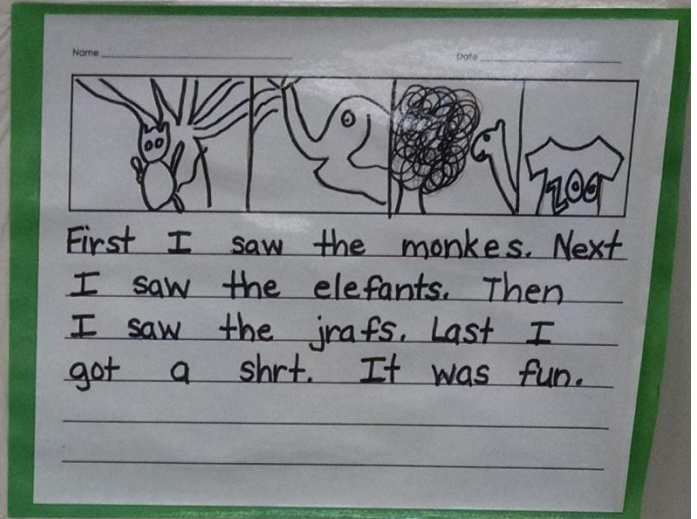 Name
Date
ZOO
First I saw the monkes. Next
I saw the elefants. Then
I saw the jrafs. Last I
got a shrt. It was fun.